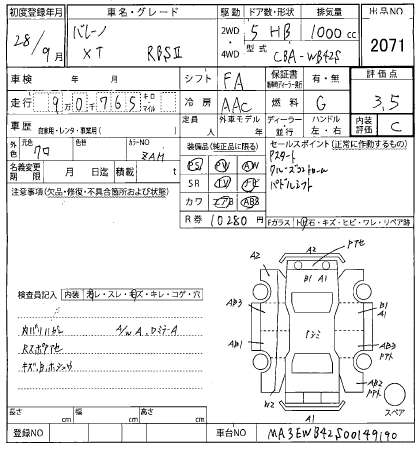 初度登録年月 車名・グレード 駆動 ドア数・形状 排気量 出品NO
28/9月 バレーノ XT RBSⅡ 2WD・4WD 5 HB 1000cc 2071
型式 CBA-WB42S
車検 年 月 シフト FA 保証書 有・無 評価点
走行 9万0千765 キロ・マイル 冷房 AAC 燃料 G 3.5
車歴 自家用・レンタ・事業用( ) 定員 人 外車モデル 年 ディーラー・並行 ハンドル 左・右 内装評価 C
外色 元色 クロ 色替 カラーNO ZAM
装備品(純正品に限る) セールスポイント(正常に作動するもの)
PS PW AW
Pスタート
名義変更期限 月 日迄 積載 t
SR TV ナビ
クルーズコントロール
カワ エアB ABS
パドルシフト
注意事項(欠品・修復・不具合箇所および状態)
R券 10280円
Fガラス 飛石・キズ・ヒビ・ワレ・リペア跡
A2 A2
B1 A1
検査員記入 内装 ヨレ・スレ・キズ・キレ・コゲ・穴
AB3 B1 A1
A/W A.
AB1 AB3
キズ,B,
AB2
W2 A1
スペア
長さ cm 幅 cm 高さ cm
登録NO 車台NO MA3EWB42S00149190